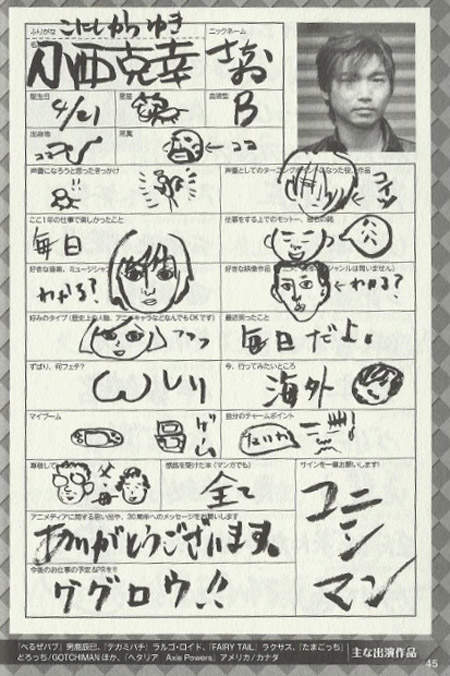 ふりがな こにしかつゆき
ニックネーム
小西克幸
さお
誕生日 星座 血液型
4/21
B
出身地 写真
ココ
ココ
声優になろうと思ったきっかけ
声優としてのターニングポイントになった役、作品
コイツ
ここ1年の仕事で楽しかったこと
毎日
仕事をする上でのモットー、座右の銘
好きな音楽、ミュージシャン
わかる?
わかる?
好みのタイプ(歴史上の人物、アニメキャラなどなんでもOKです)
フフフ
最近笑ったこと
毎日だよ。
ずばり、何フェチ?
しり
今、行ってみたいところ
海外
マイブーム
ゲーム
自分のチャームポイント
たいわく
尊敬して
父 母
感銘を受けた本(マンガでも)
全て
サインを一個お願いします!
コニシマン
アニメディアに関する思い出や、30周年へのメッセージをお願いします
ありがとうございます。
今後のお仕事の予定&PRを!!
ググロウ!!
「べるぜバブ」男鹿辰巳、「テガミバチ」ラルゴ・ロイド、「FAIRY TAIL」ラクサス、「たまごっち」
どろっち/GOTCHIMANほか、「ヘタリア Axis Powers」アメリカ/カナダ
主な出演作品
45